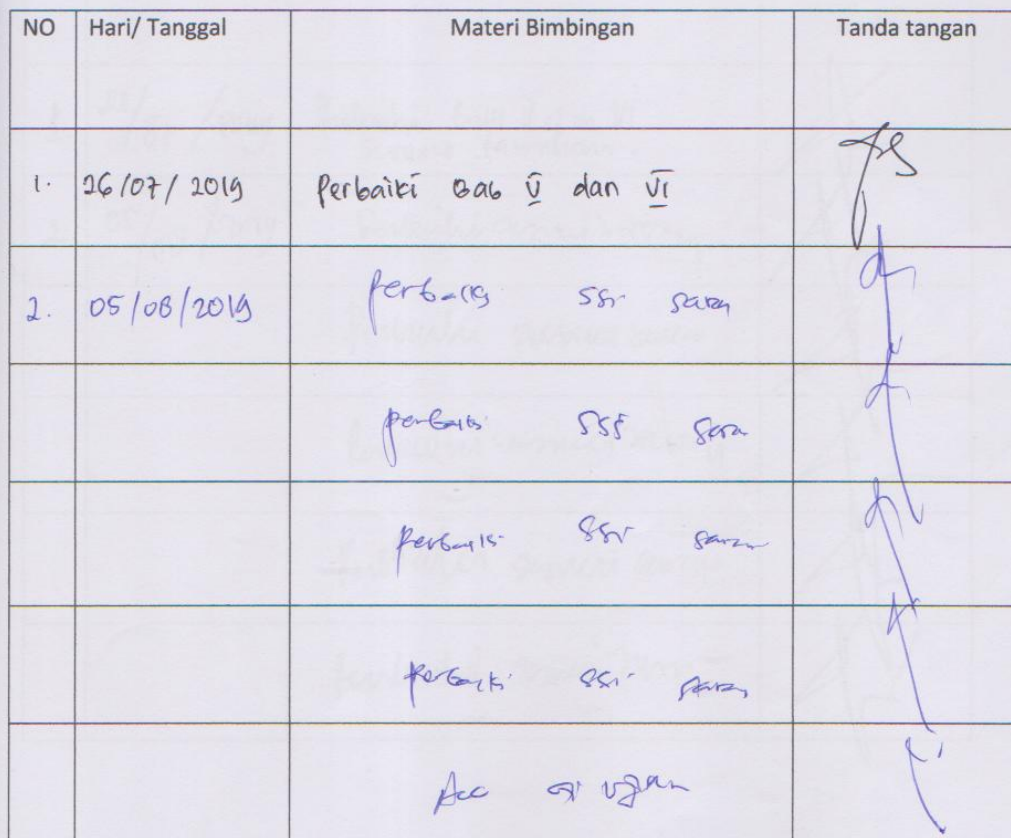 NO Hari/ Tanggal Materi Bimbingan Tanda tangan
1. 26/07/2019 Perbaiki Bab V dan VI
2. 05/08/2019 Perbaiki ssi saran
Perbaiki ssi saran
Perbaiki ssi saran
Perbaiki ssi saran
Acc ujian